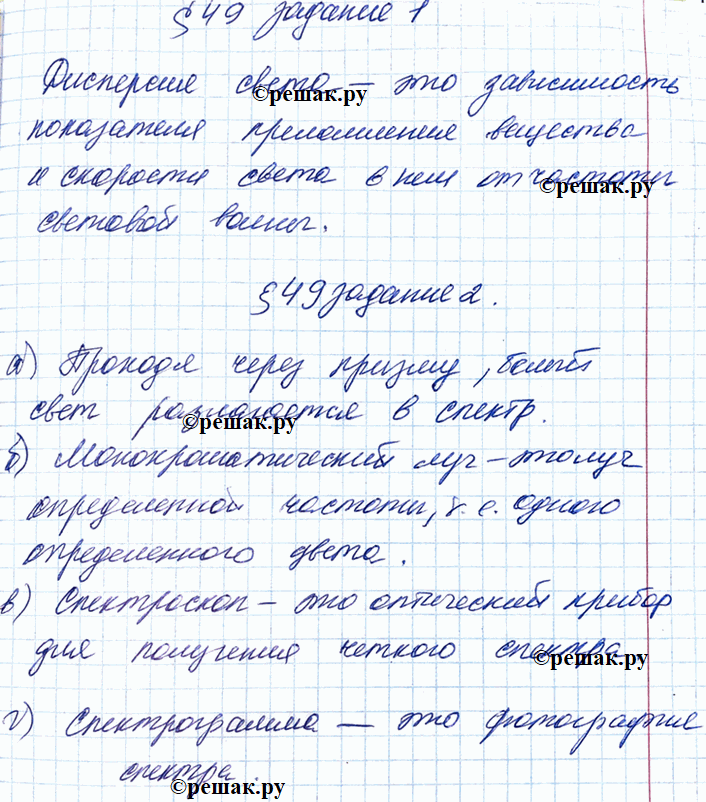 §49 задание 1
Дисперсия света – это зависимость
©решак.ру
показателя преломления вещества
и скорости света в нем от частоты
©решак.ру
световой волны.
§49 задание 2.
а) Проходя через призму, белый
свет разлагается в спектр.
©решак.ру
б) Монохроматический луч – это луч
определенной частоты, т.е. одного
определенного цвета.
в) Спектроскоп – это оптический прибор
для получения четкого спектра
©решак.ру
г) Спектрограмма — это фотография
спектра.
©решак.ру